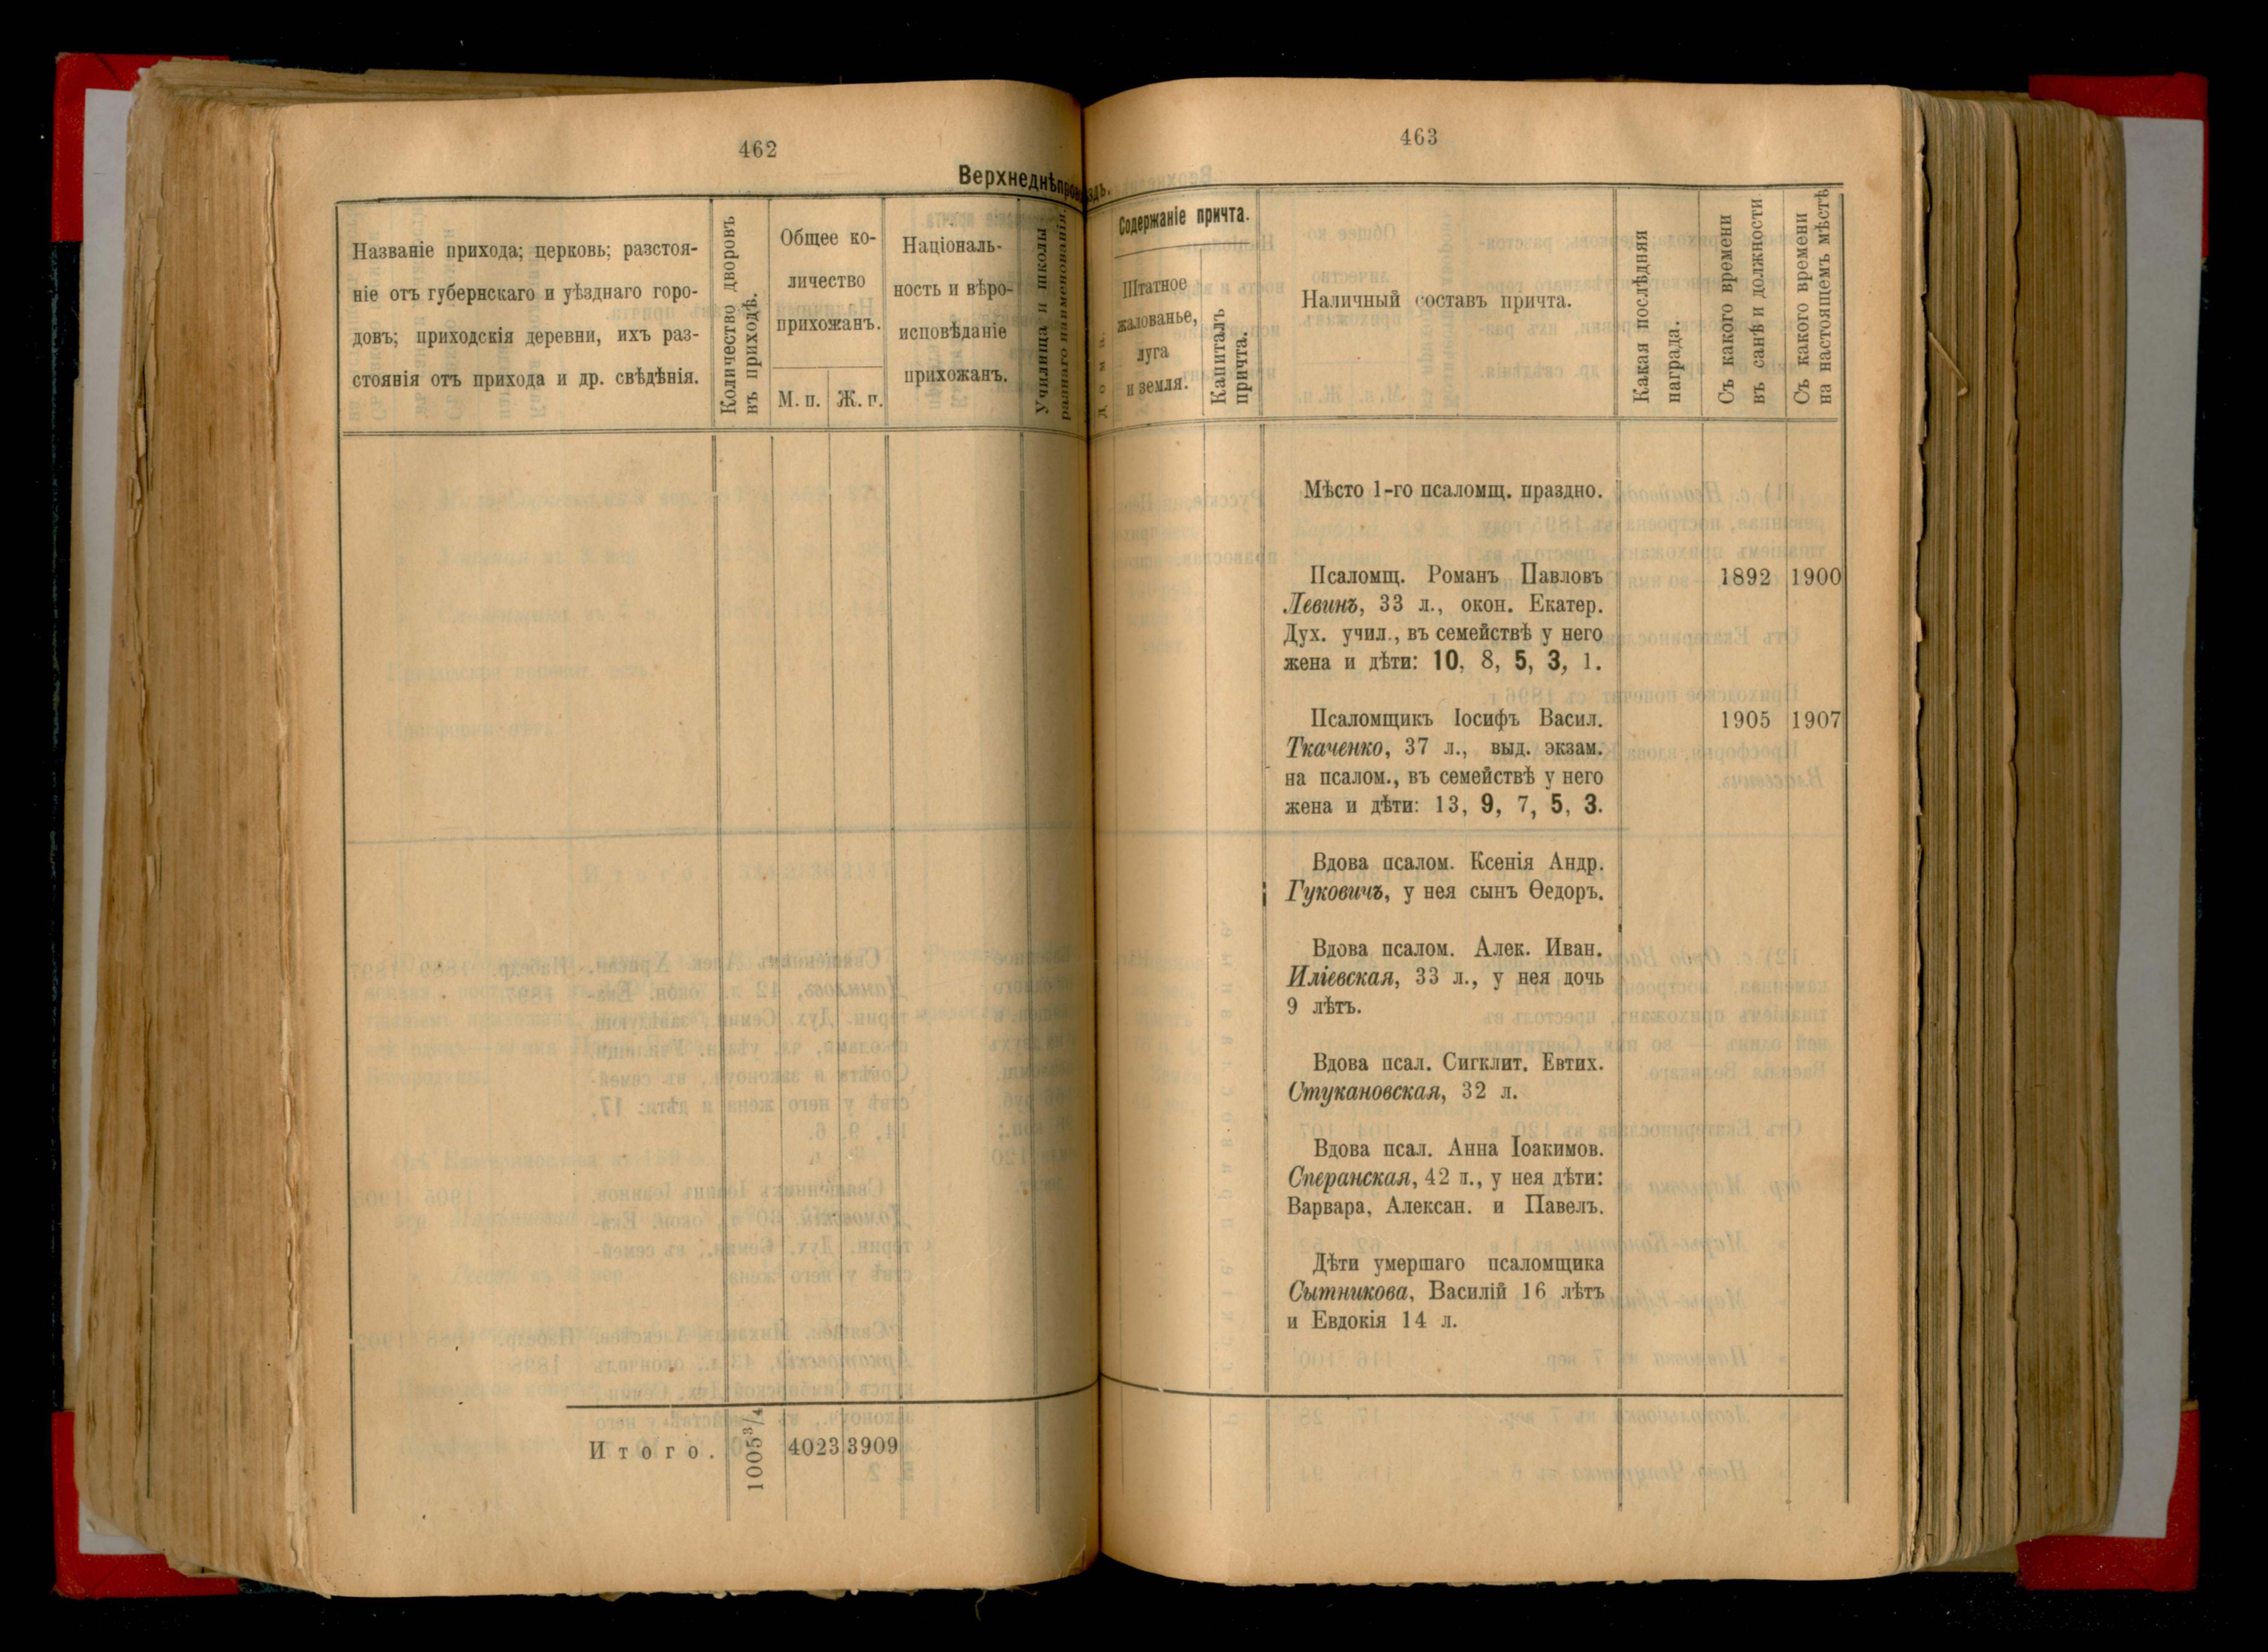 462
Верхнеднѣпров
Названіе прихода; церковь; разстоя-
ніе отъ губернскаго и уѣзднаго горо-
довъ; приходскія деревни, ихъ раз-
стоянія отъ прихода и др. свѣдѣнія.
Количество дворовъ
въ приходѣ.
Общее ко-
личество
прихожанъ.
М. п.
Ж. п.
Націоналъ-
ность и вѣро-
исповѣданіе
прихожанъ.
Училища и школы
разнаго наименованія.
Итого.
1005³/₄
4023
3909
463
здъ.
Дома.
Содержаніе причта.
Штатное
жалованье,
луга
и земля.
Капиталъ
причта.
Наличный составъ причта.
Какая послѣдняя
награда.
Съ какого времени
въ санѣ и должности
Съ какого времени
на настоящемъ мѣстѣ
Мѣсто 1-го псаломщ. праздно.
Псаломщ. Романъ Павловъ 1892 1900
Левинъ, 33 л., окон. Екатер.
Дух. учил., въ семействѣ у него
жена и дѣти: 10, 8, 5, 3, 1.
Псаломщикъ Іосифъ Васил. 1905 1907
Ткаченко, 37 л., выд. экзам.
на псалом., въ семействѣ у него
жена и дѣти: 13, 9, 7, 5, 3.
Вдова псалом. Ксенія Андр.
Гуковичъ, у нея сынъ Ѳедоръ.
Вдова псалом. Алек. Иван.
Иліевская, 33 л., у нея дочь
9 лѣтъ.
Вдова псал. Сигклит. Евтих.
Стукановская, 32 л.
Вдова псал. Анна Іоакимов.
Сперанская, 42 л., у нея дѣти:
Варвара, Алексан. и Павелъ.
Дѣти умершаго псаломщика
Сытникова, Василій 16 лѣтъ
и Евдокія 14 л.